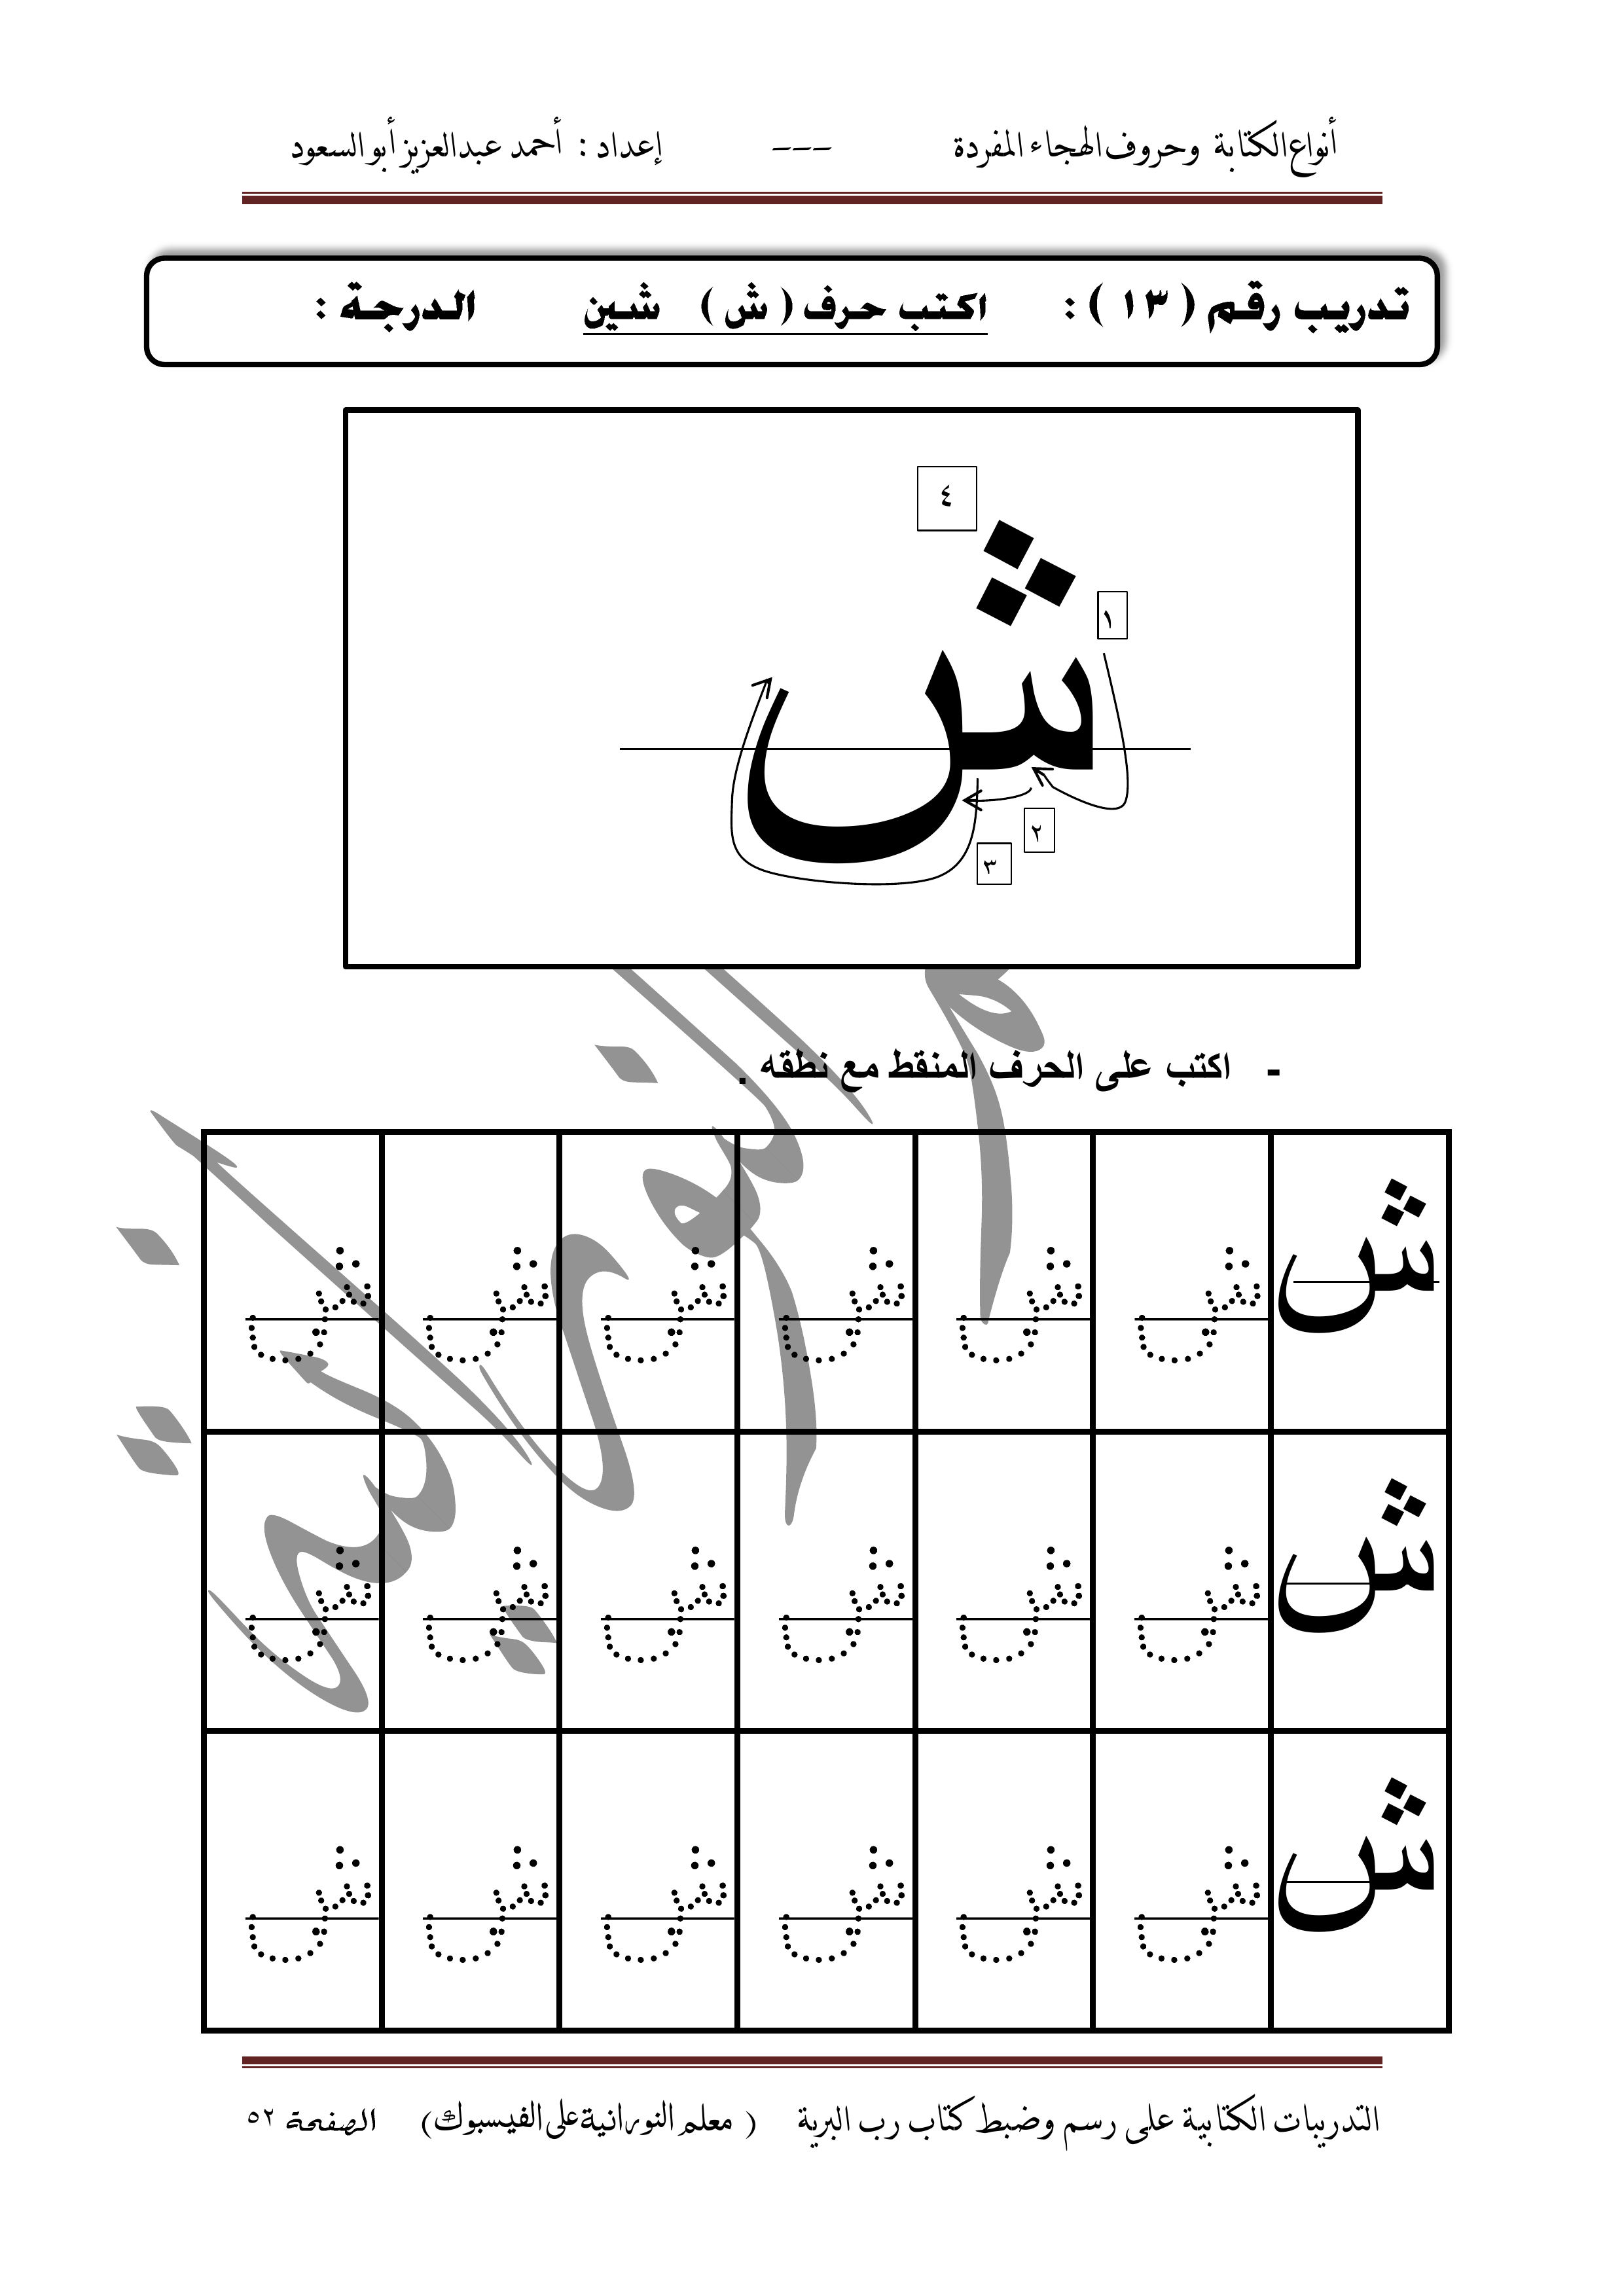 أنواع الكتابة وحروف الهجاء المفردة --- إعداد : أحمد عبدالعزيز أبوالسعود
تدريب رقم ( ١٣ ) : اكتب حرف ( ش ) شين الدرجة :
٤
١
ش
٢
٣
- اكتب على الحرف المنقط مع نطقه .
ش ش ش ش ش ش ش
ش ش ش ش ش ش ش
ش ش ش ش ش ش ش
التدريبات الكتابية على رسم وضبط كتاب رب البرية ( معلم النورانية على الفيسبوك) الصفحة ٥٢